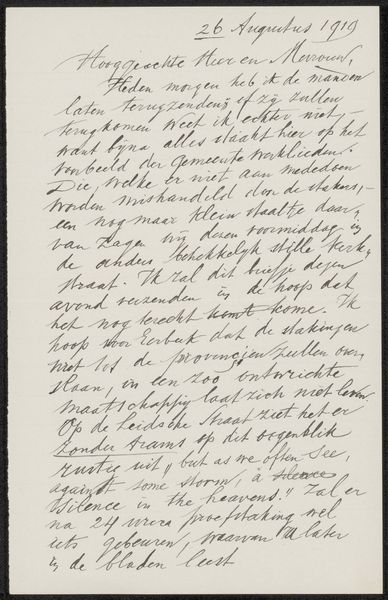 26 Augustus 1919
Hooggeachte Heer en Mevrouw,
Heden morgen heb ik de manden
laten terugzenden; of zij zullen
terugkomen weet ik echter niet,
want byna alles staakt hier op het
voorbeeld der Gemeente werklieden.
Die, welke er niet aan mededoen
worden mishandeld door de stakers,
een nog maar klein staaltje daar-
van zagen wij dezen voormiddag in
de anders betrekkelyk stille Kerk-
straat. Ik zal dit briefje dezen
avond verzenden in de hoop dat
het nog terecht komt kome. Ik
hoop voor Eerbeek dat de stakingen
niet tot de provinciën zullen over-
slaan, in een zoo ontwrichte
maatschappij laat zich niet leven.
Op de Leidsche Straat ziet het er
zonder trams op dit oogenblik
rustig uit, "but as we often see,
against some storm, a silence
silence in the heavens." Zal er
na 24 urers proefstaking wel
iets gebeuren, waarvan U later
in de bladen leest